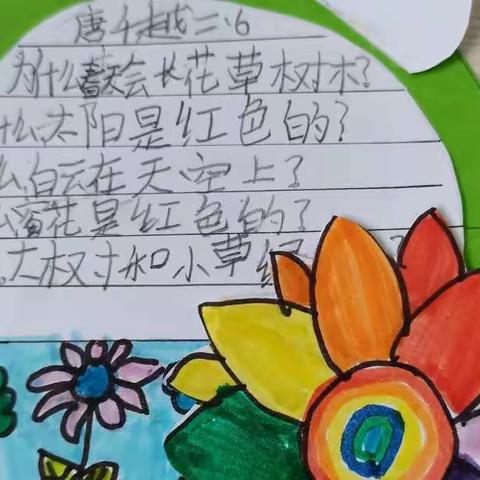 唐千越二.6
为什么春天会长花草树木?
什么太阳是红色的?
么白云在天空上?
么蜜花是红色的?
大树和小草绿